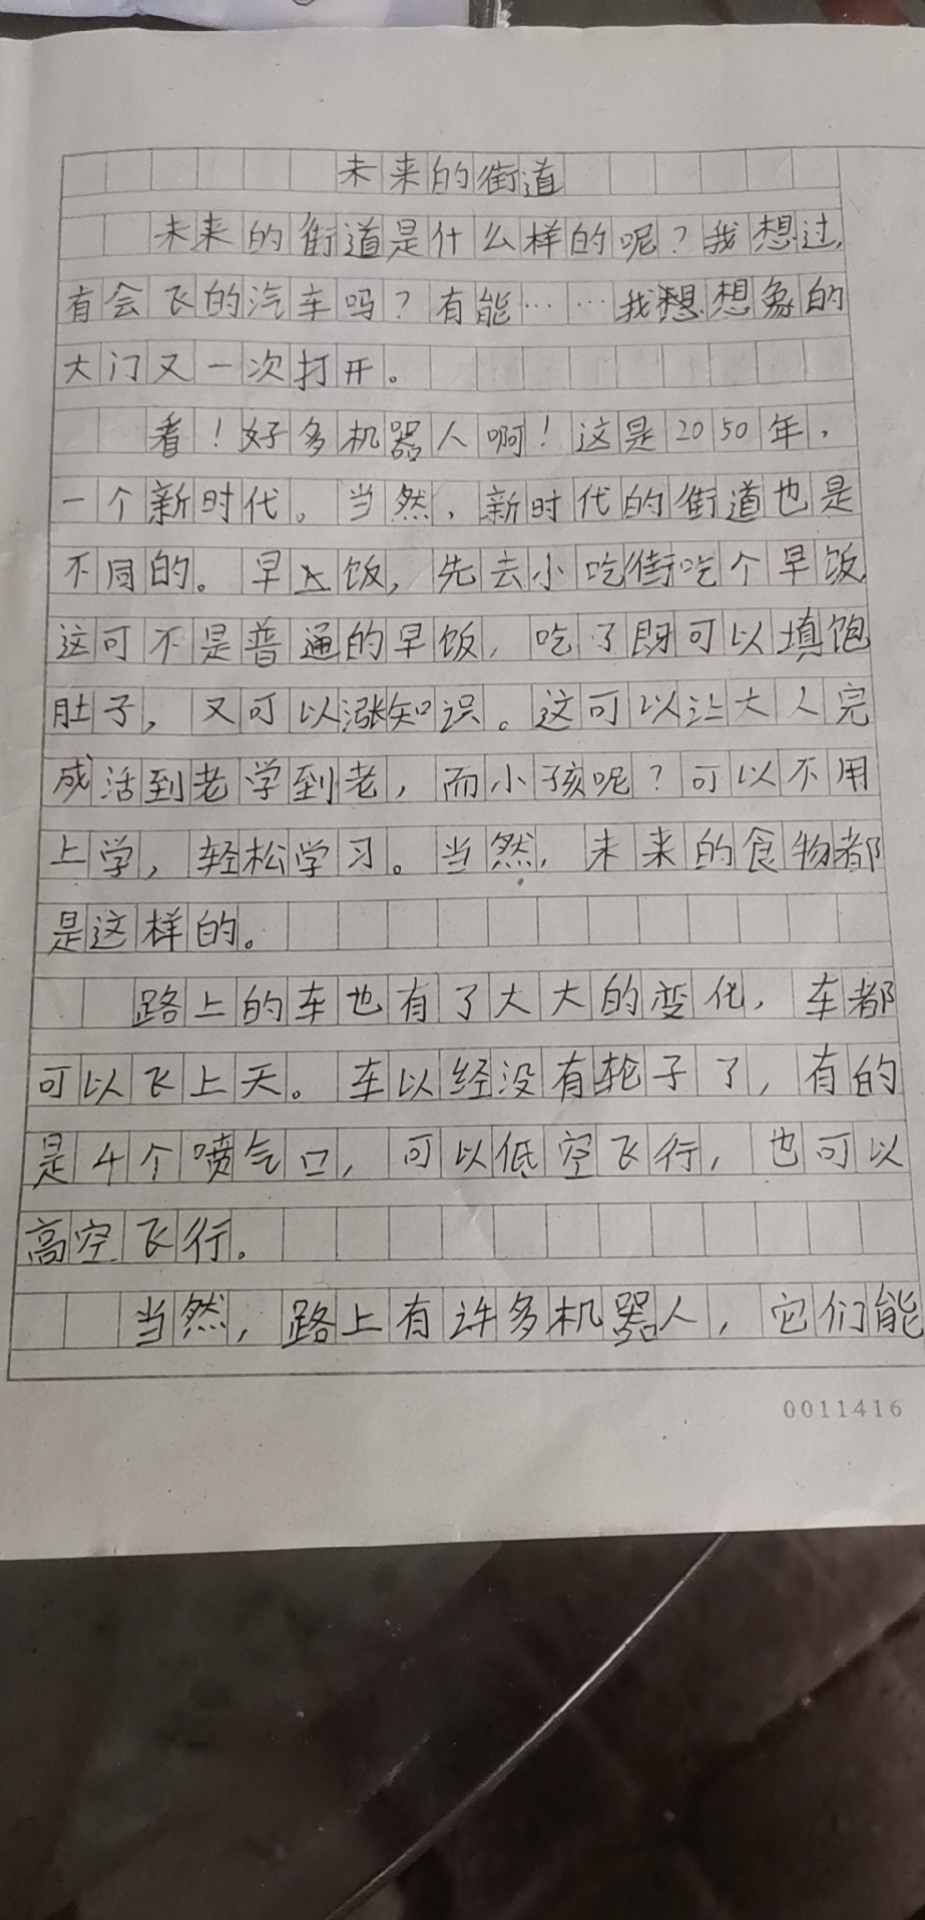 未来的街道
未来的街道是什么样的呢？我想过，
有会飞的汽车吗？有能……我想想象的
大门又一次打开。
看！好多机器人啊！这是2050年，
一个新时代。当然，新时代的街道也是
不同的。早饭，先去小吃街吃个早饭，
这可不是普通的早饭，吃了既可以填饱
肚子，又可以涨知识。这可以让大人完
成活到老学到老，而小孩呢？可以不用
上学，轻松学习。当然，未来的食物都
是这样的。
路上的车也有了大大的变化，车都
可以飞上天。车以经没有轮子了，有的
是4个喷气口，可以低空飞行，也可以
高空飞行。
当然，路上有许多机器人，它们能
0011416